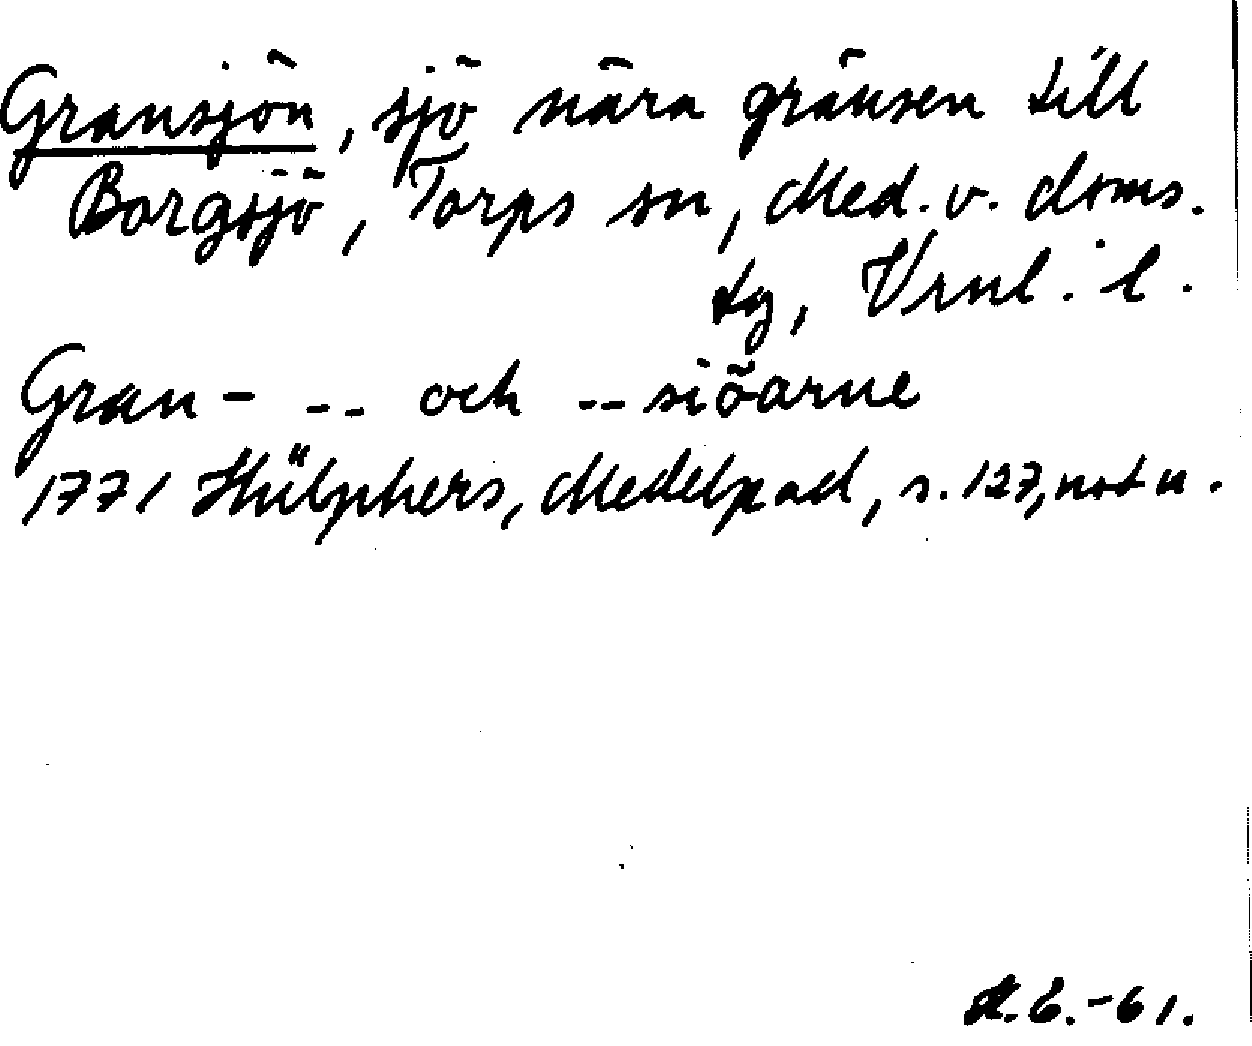 Gransjön, sjö nära gränsen till
Borgsjö, Torps sn, Med. v. doms.
tg, Vrnl. l.
Gran- -- och --siöarne
1771 Hülphers, Medelpad, s. 127, not u.
-61.